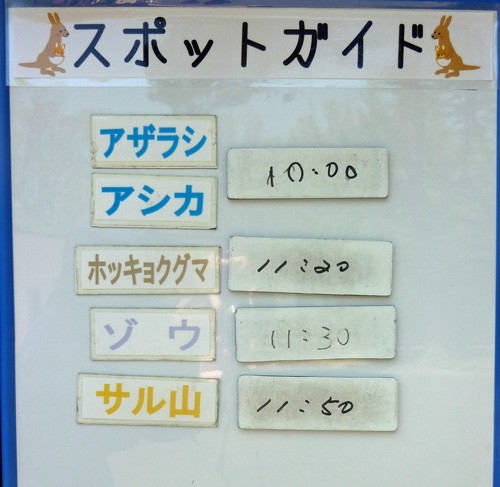 スポットガイド
アザラシ
アシカ
10:00
ホッキョクグマ
11:20
ゾウ
11:30
サル山
11:50